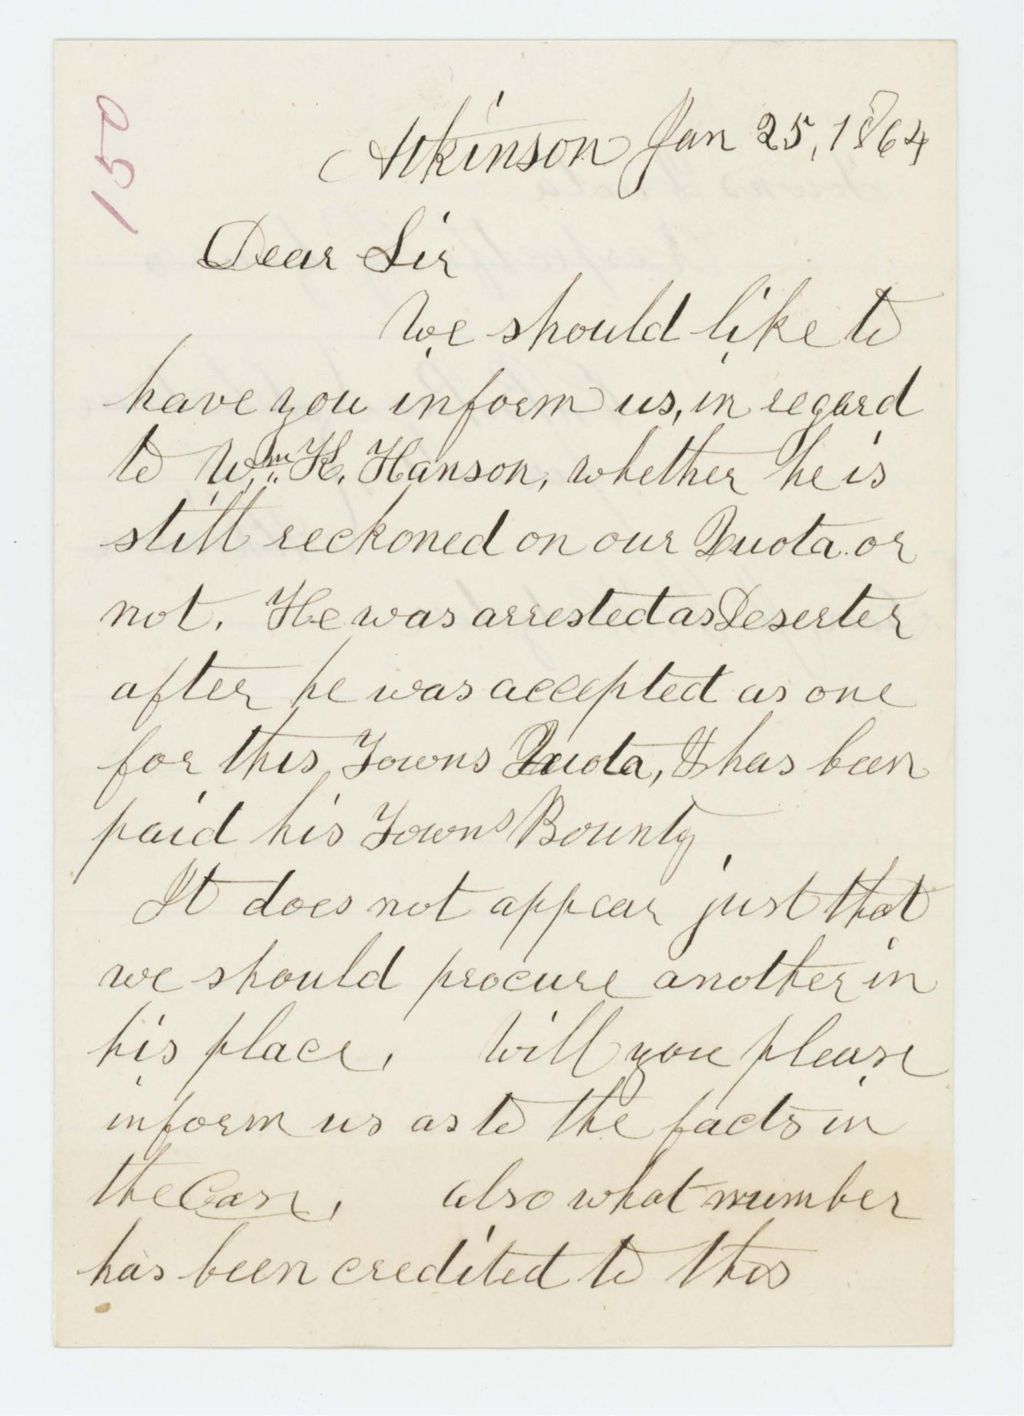 150
Atkinson Jan 25, 1864
Dear Sir
We should like to
have you inform us, in regard
to Wm. K. Hanson, whether he is
still reckoned on our Quota or
not. He was arrested as Deserter
after he was accepted as one
for this Towns Quota, & has been
paid his Towns Bounty.
It does not appear just that
we should procure another in
his place. Will you please
inform us as to the facts in
the Case, also what number
has been credited to this